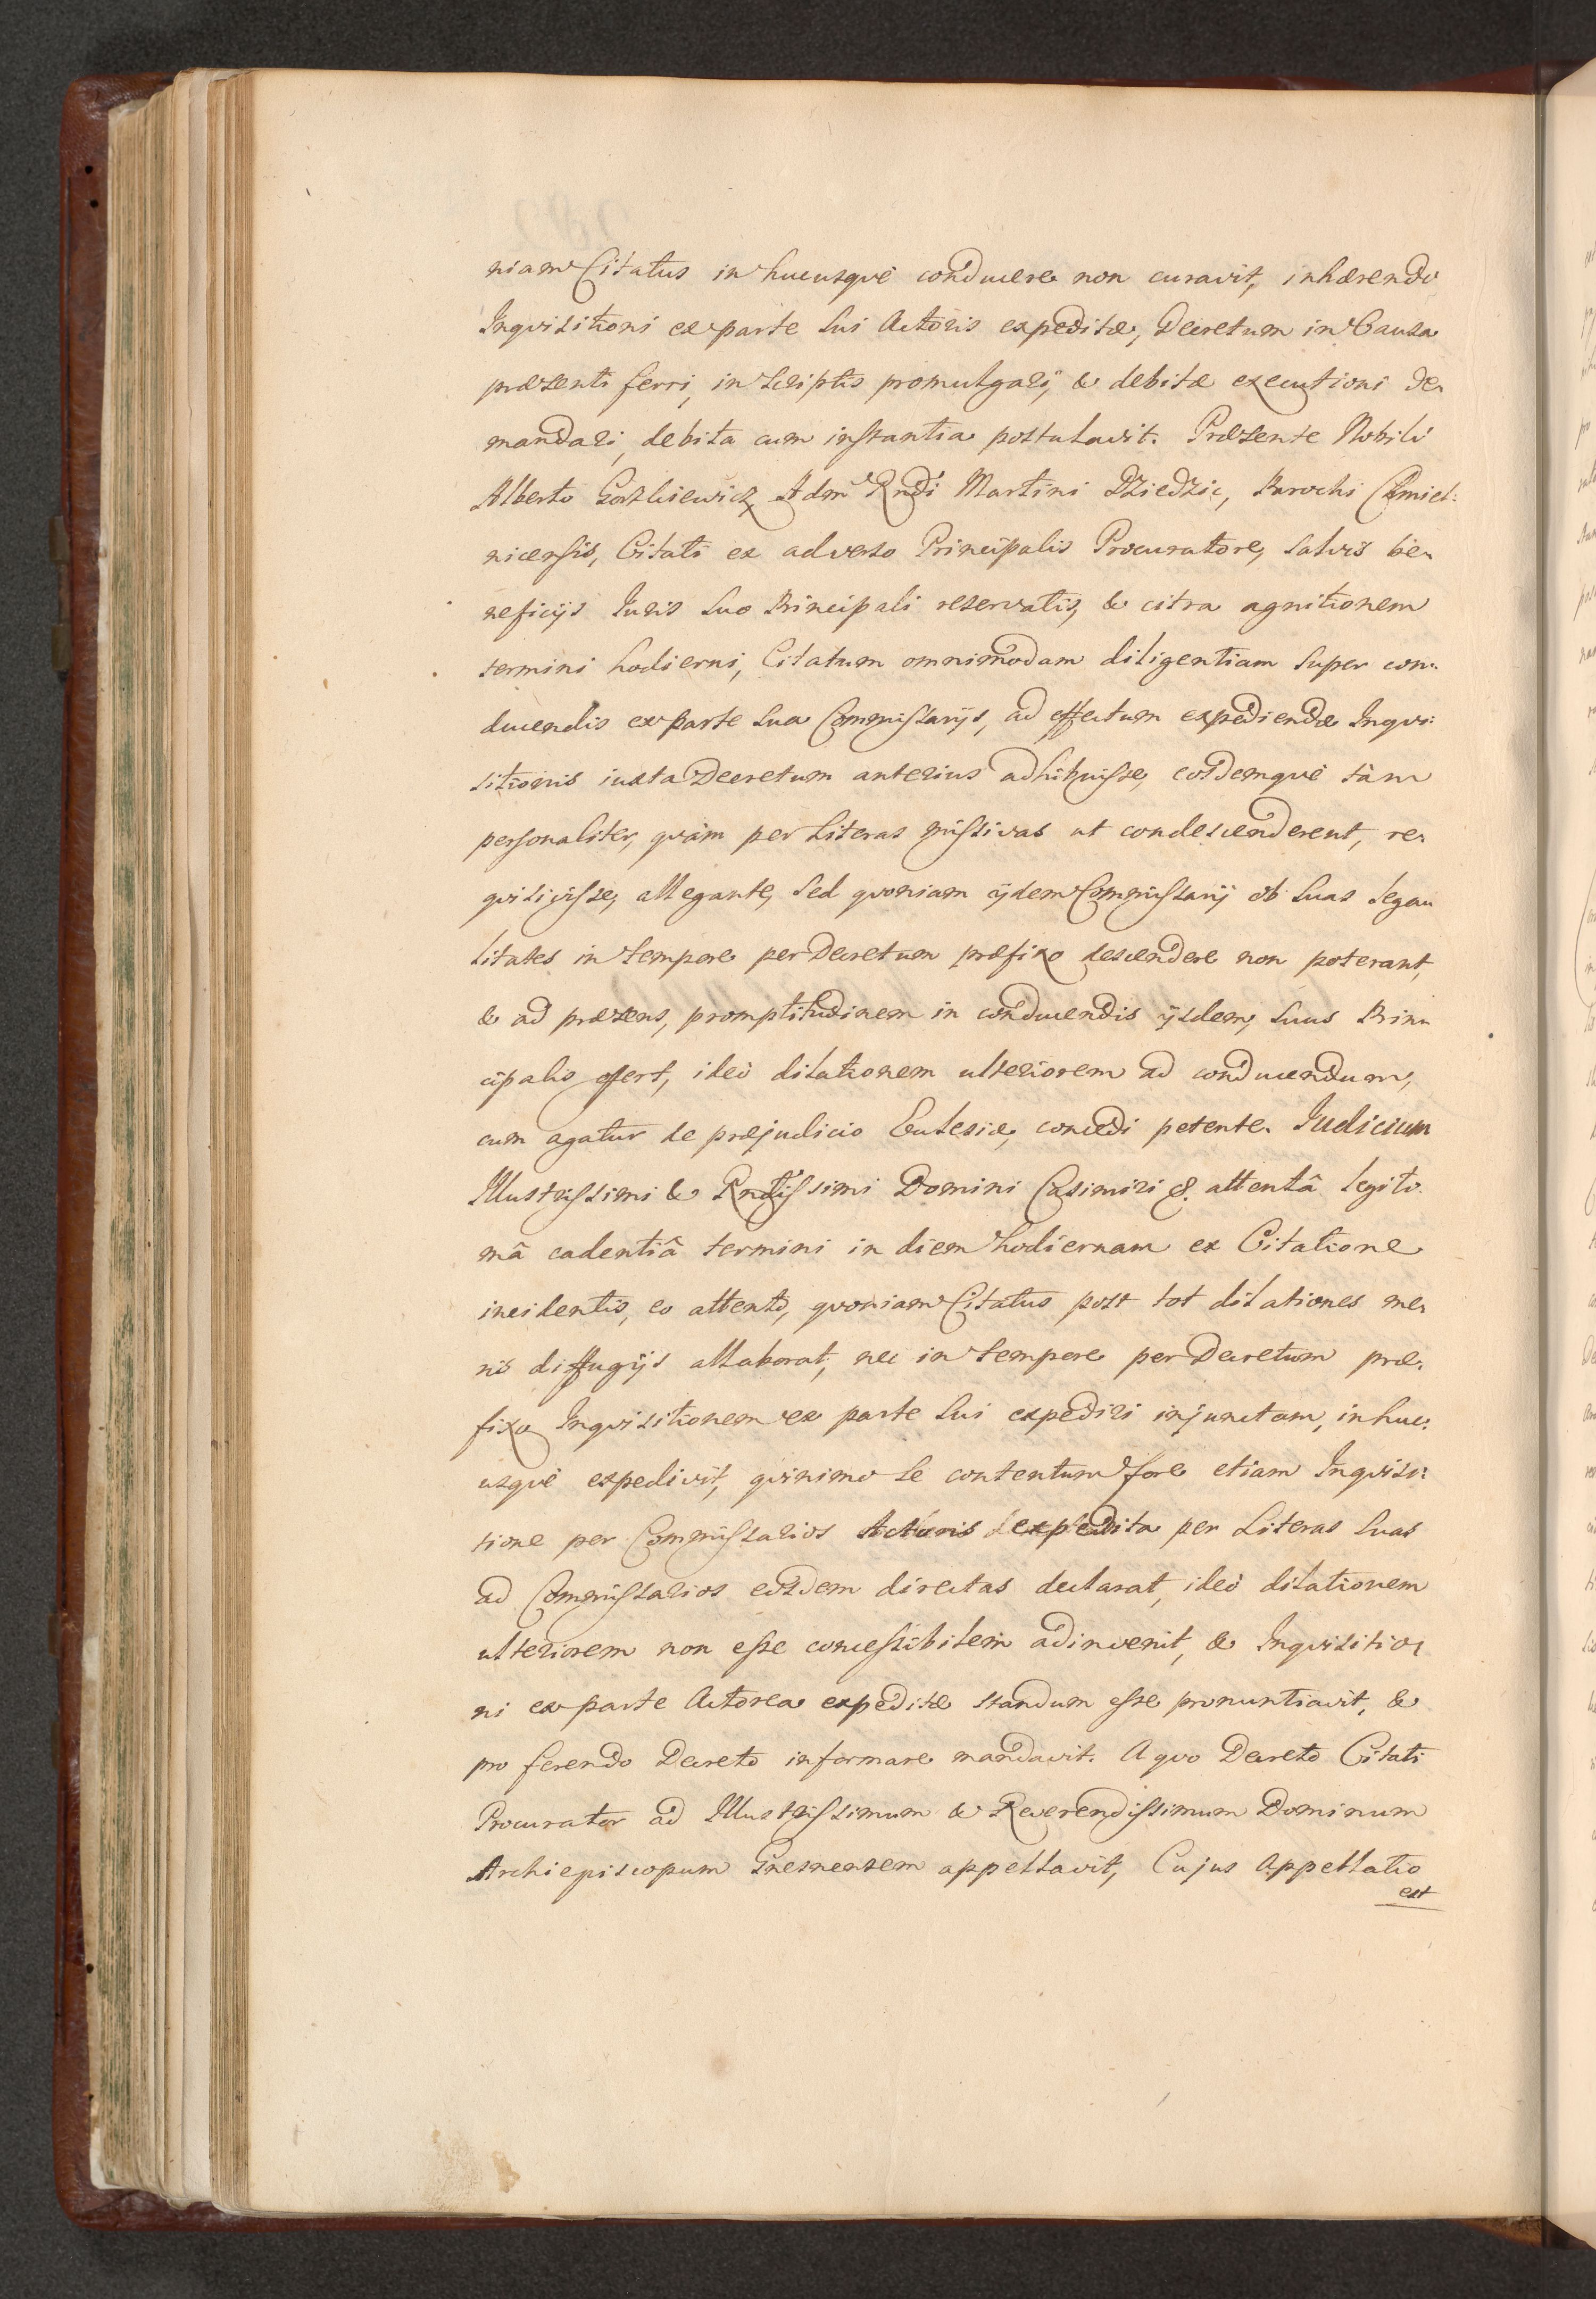 niam Citatus in hucusqve conducere non curavit, inhærendo
Inqvisitioni ex parte sui Actoris expeditæ, Decretum in Causa
præsenti ferri, in scriptis promulgari, & debitæ executioni de-
mandari, debita cum instantia postulavit. Præsente Nobili
Alberto Adm Rndi Martini Dziedzic, Parochi Chmiel:
nicensis, Citati ex adverso Principalis Procuratore, salvis be-
neficijs Iuris suo Principali reservatis, & citra agnitionem
termini hodierni, Citatum omnimodam diligentiam super con-
ducendis ex parte sua Commissarijs, ad effectum expediendæ Inqvi:
sitionis iuxta Decretum anterius adhibuisse, eosdemqvè tàm
personaliter, qvàm per Literas missivas ut condescenderent, re-
qvisivisse, allegante, sed qvoniam ijdem Commissarij ob suas legau
litates in tempore per Decretum præfixo descendere non poterant,
& ad præsens, promptitudinem in conducendis ijsdem, suus Prin-
cipalis offert, ideò dilationem ulteriorem ad conducendum,
cum agatur de præjudicio Ecclesiæ, concedi petente. Iudicium
Illustrissimi & Rndissimi Domini Casimiri &. attentâ legiti-
mâ cadentiâ termini in diem hodiernam ex Citatione
incidentis, eo attento, qvoniam Citatus post tot dilationes me-
ris diffugijs allaborat, nec in tempore per Decretum præ-
fixo Inqvisitionem ex parte sui expediri injunctam, inhuc:
usqvè expedivit, qvinimo se contentum fore etiam Inqvisi:
tione per Commissarios Actoris expedita per Literas suas
ad Commissarios eosdem directas declarat, ideò dilationem
ulteriorem non esse concessibilem adinvenit, & Inqvisitio-
ni ex parte Actorea expeditæ standum esse pronuntiavit, &
pro ferendo Decreto informare mandavit. A qvo Decreto Citati
Procurator ad Illustrissimum & Reverendissimum Dominum
Archiepiscopum Gnesnensem appellavit, Cujus Appellatio
est